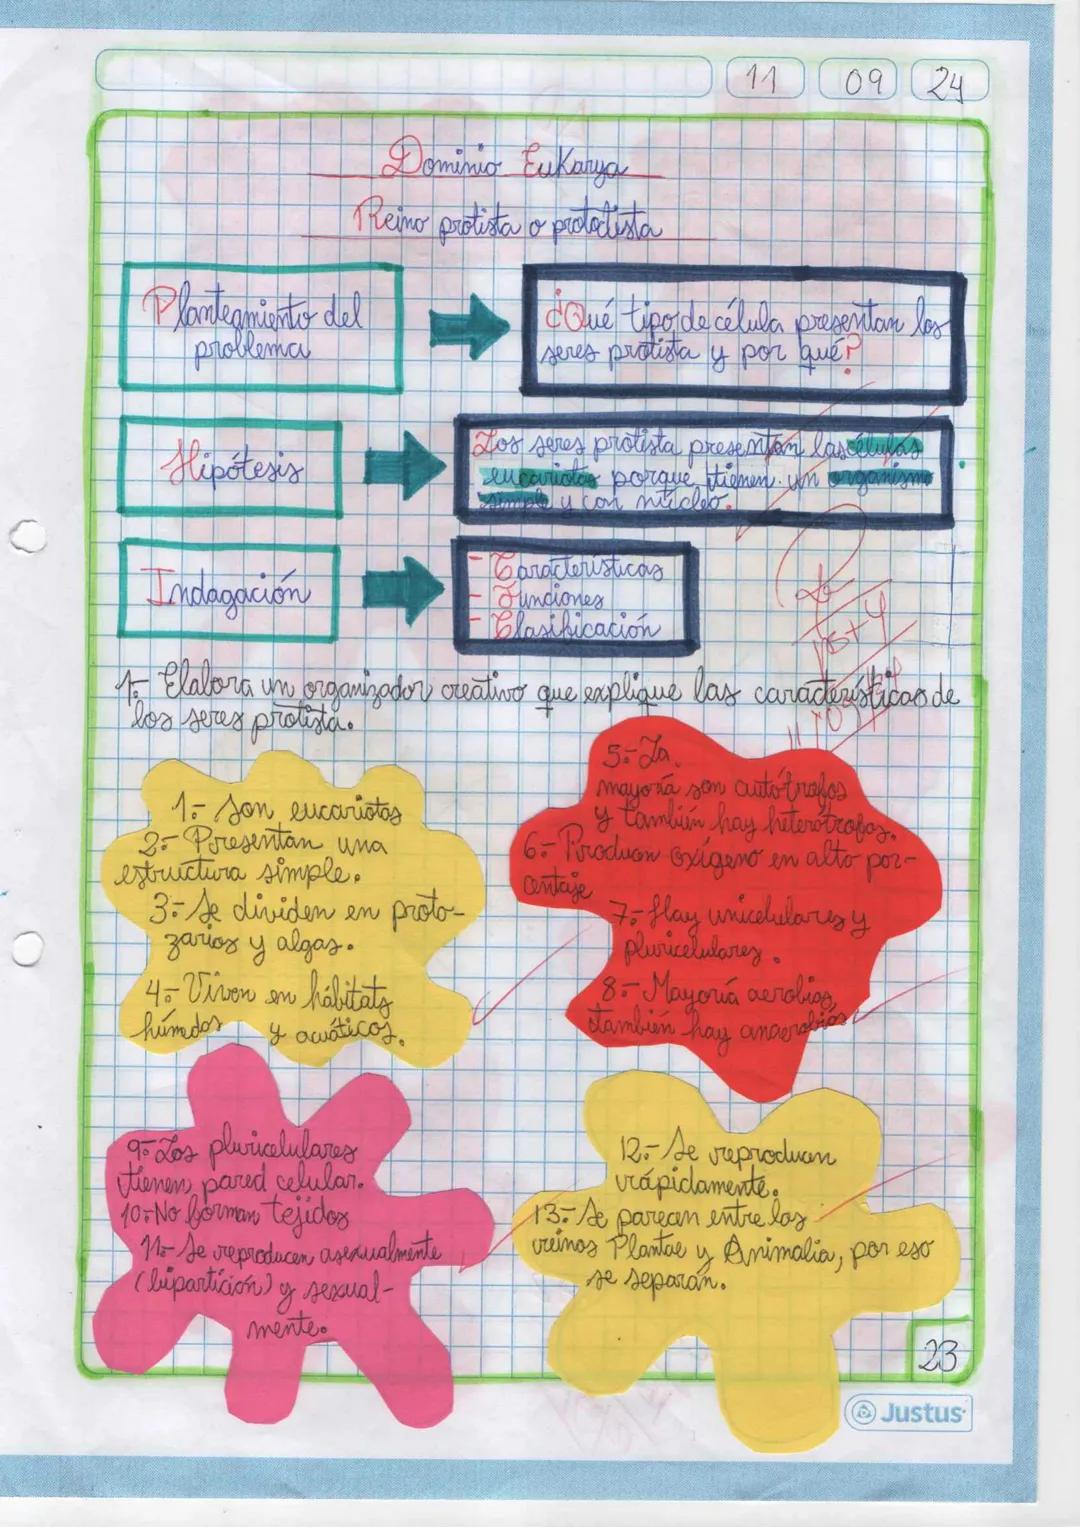 11 09 24
Dominio Eukarya
Reino protista o protoctista
Planteamiento del
problema
¿Qué tipo de célula presentan los
seres protista y por qué?
Hipótesis
Los seres protista presentan las células
eucariotas porque tienen un organismo
simple y con núcleo.
Indagación
- Características
- Funciones
- Clasificación
1.- Elabora un organizador creativo que explique las características de
los seres protista.
1.- Son eucariotas
2.- Presentan una
estructura simple.
3.- Se dividen en proto-
zarios y algas.
4.- Viven en hábitats
húmedos y acuáticos.
5.- La
mayoría son autótrafos
y también hay heterótrofos.
6.- Producen oxígeno en alto por-
centaje
7.- Hay unicelulares y
pluricelulares.
8.- Mayoría aerobios,
también hay anaerobios
9.- Los pluricelulares
tienen pared celular.
10.- No forman tejidos
11.- Se reproducen asexualmente
(bipartición) y sexual-
mente.
12.- Se reproducen
rápidamente.
13.- Se parecen entre los
reinos Plantae y Animalia, por eso
se separán.
23
Justus